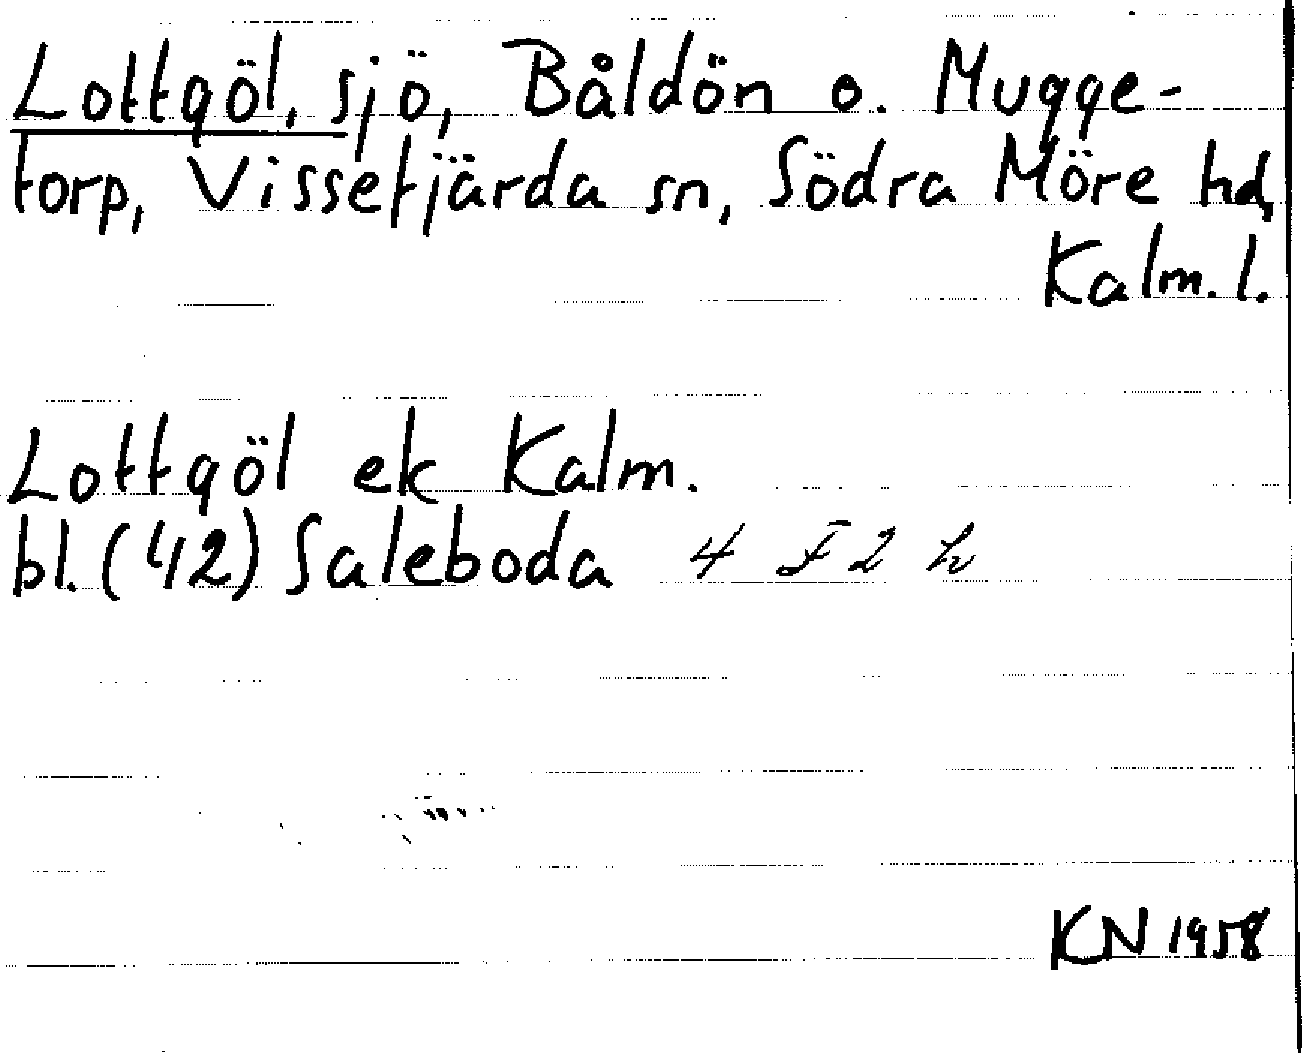 Lottgöl, sjö, Båldön o. Mugge-
torp, Vissefjärda sn, Södra Möre hd,
Kalm. l.
Lottgöl ek Kalm.
bl. (42) Saleboda 4 F 2 h
KN 1958